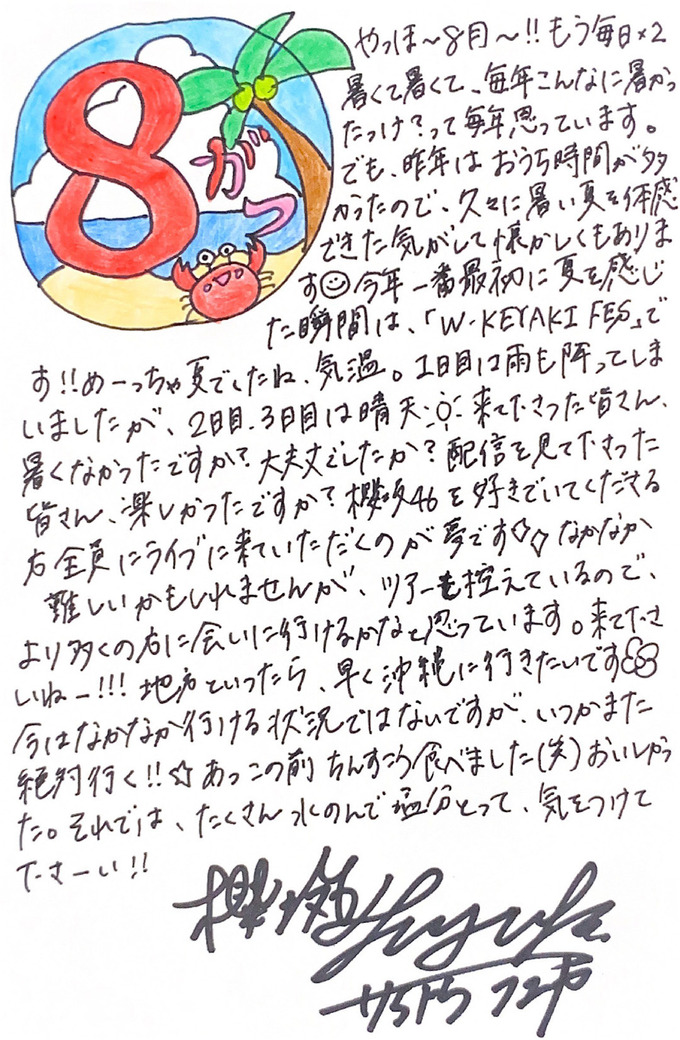 8がつ
やっほ〜8月〜!!もう毎日×2
暑くて暑くて、毎年こんなに暑かっ
たっけ?って毎年思っています。
でも、昨年はおうち時間が多
かったので、久々に暑い夏を体感
できた気がして懐かしくもありま
す☺今年一番最初に夏を感じ
た瞬間は、「W-KEYAKI FES」で
す!!めーっちゃ夏でしたね、気温。1日目は雨も降ってしま
いましたが、2日目、3日目は晴天☼来て下さった皆さん、
暑くなかったですか?大丈夫でしたか?配信を見て下さった
皆さん、楽しかったですか?櫻坂46を好きでいてくださる
方全員にライブに来ていただくのが夢です✧✧なかなか
難しいかもしれませんが、ツアーも控えているので、
より多くの方に会いに行けるかなと思っています。来て下さ
いねー!!!地方といったら、早く沖縄に行きたいです
今はなかなか行ける状況ではないですが、いつかまた
絶対行く!!☆あっこの前ちんすこう食べました(笑)おいしかっ
た。それでは、たくさん水のんで塩分とって、気をつけて
下さーい!!
櫻坂 Fuyuka